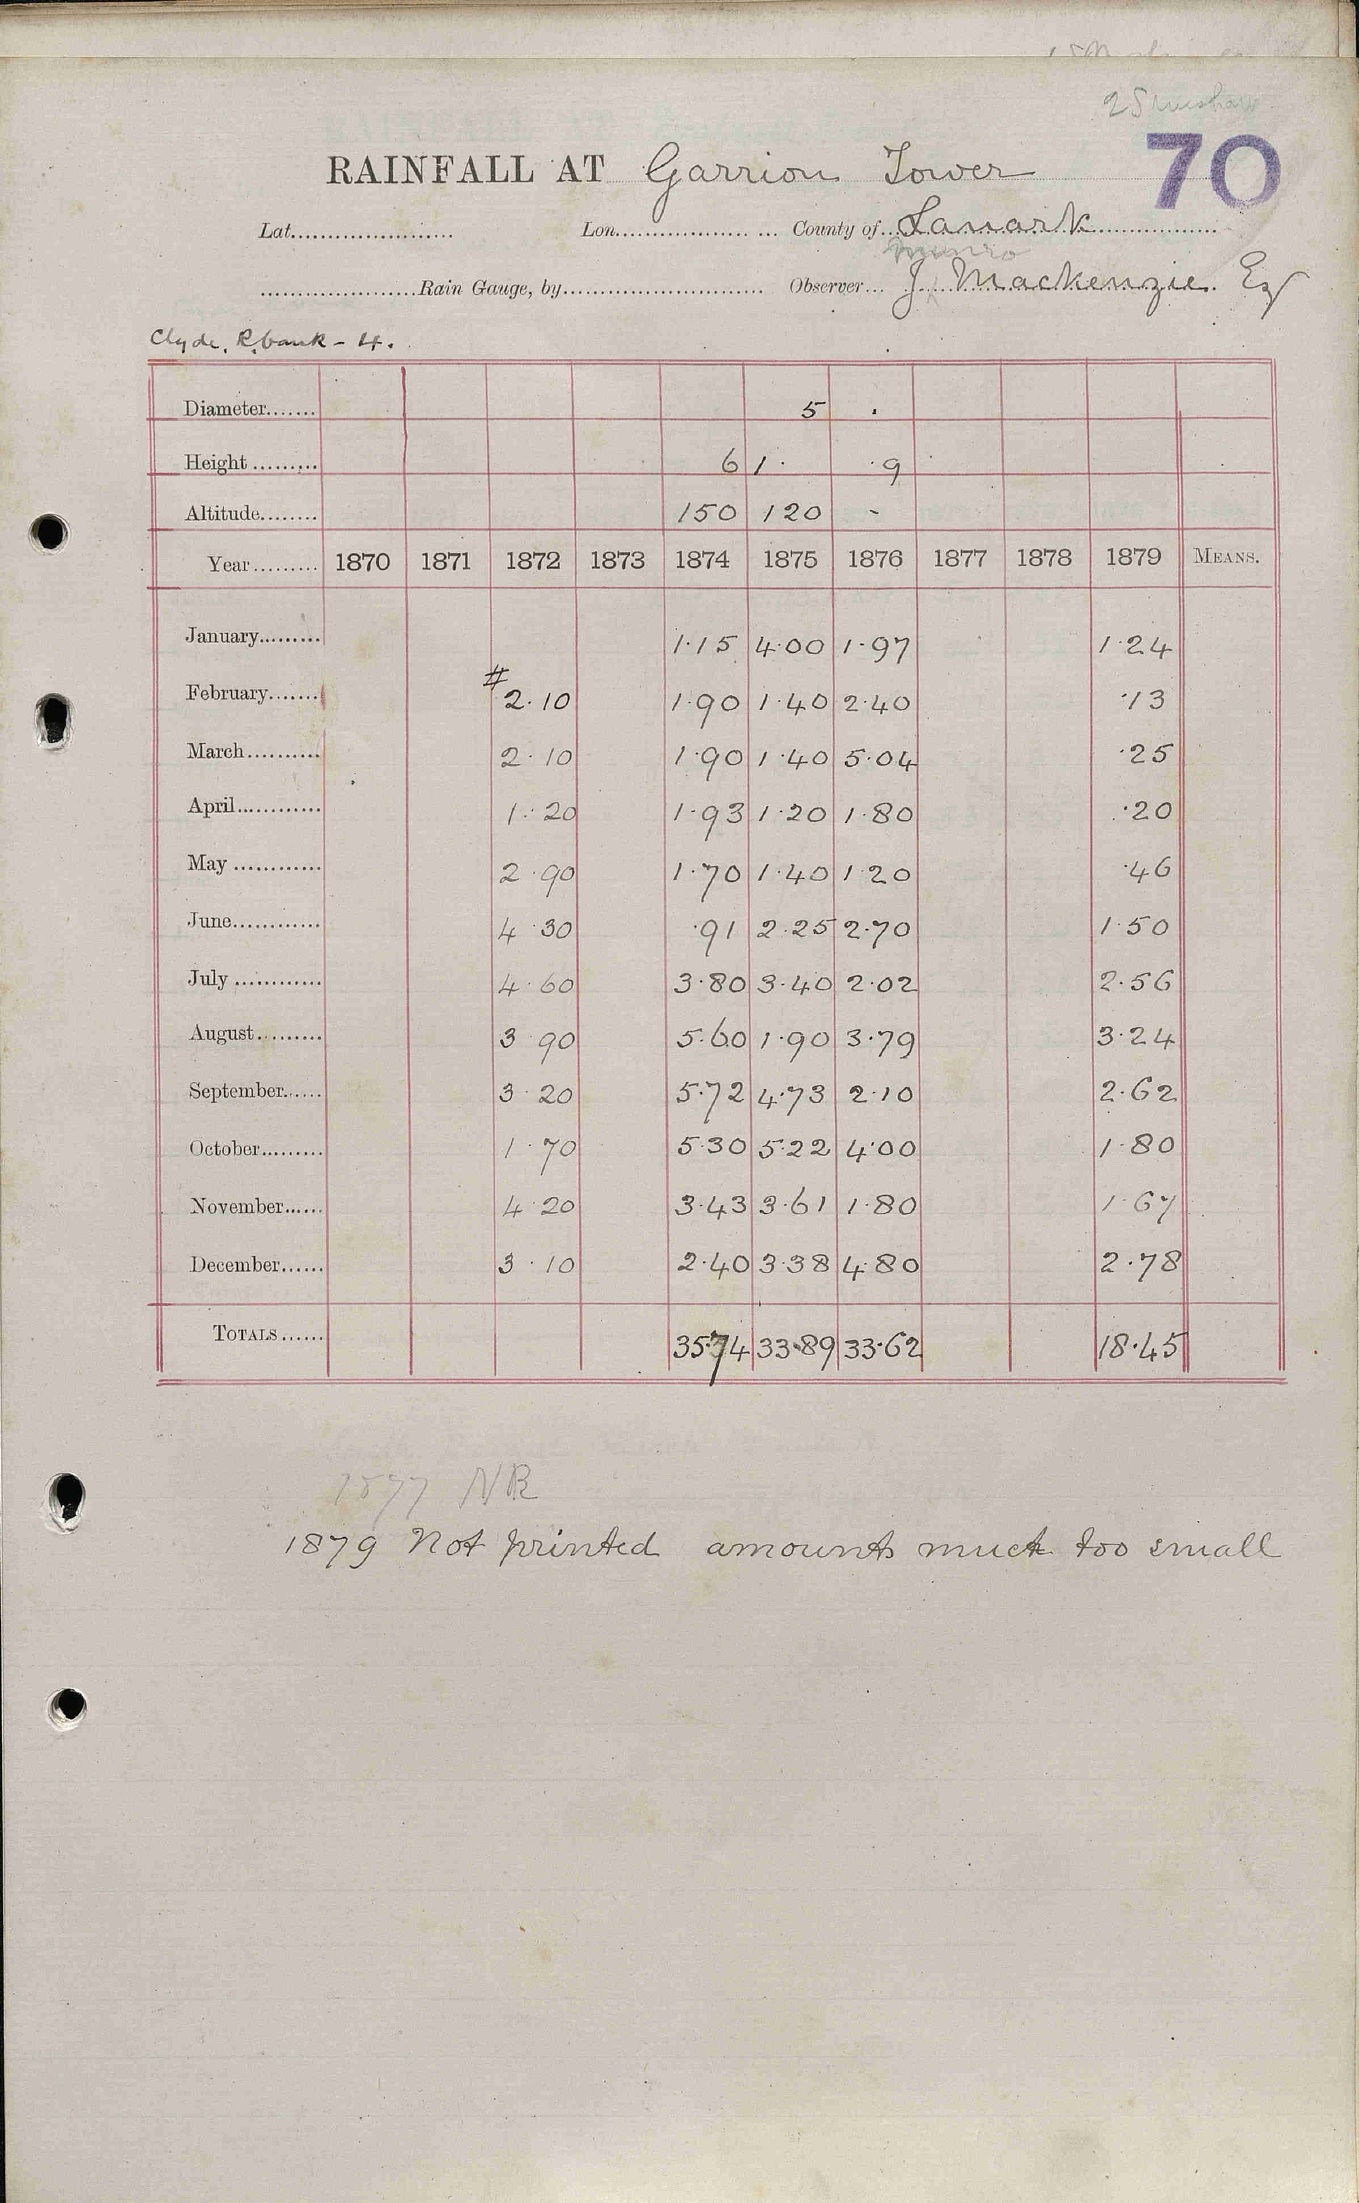 70
RAINFALL AT Garrion Tower
Lat. Lon. County of Lanark
Munro
Rain Gauge, by Observer J. Mackenzie. Esq
Clyde, R. bank - 4.
Diameter 5 .
Height 6 1 . . 9
Altitude 150 120 -
Year 1870 1871 1872 1873 1874 1875 1876 1877 1878 1879 MEANS.
January 1.15 4.00 1.97 1.24
February # 2.10 1.90 1.40 2.40 .13
March 2.10 1.90 1.40 5.04 .25
April 1.20 1.93 1.20 1.80 .20
May 2.90 1.70 1.40 1.20 .46
June 4.30 .91 2.25 2.70 1.50
July 4.60 3.80 3.40 2.02 2.56
August 3.90 5.60 1.90 3.79 3.24
September 3.20 5.72 4.73 2.10 2.62
October 1.70 5.30 5.22 4.00 1.80
November 4.20 3.43 3.61 1.80 1.67
December 3.10 2.40 3.38 4.80 2.78
TOTALS 35.74 33.89 33.62 18.45
1877 NR
1879 Not printed amounts much too small